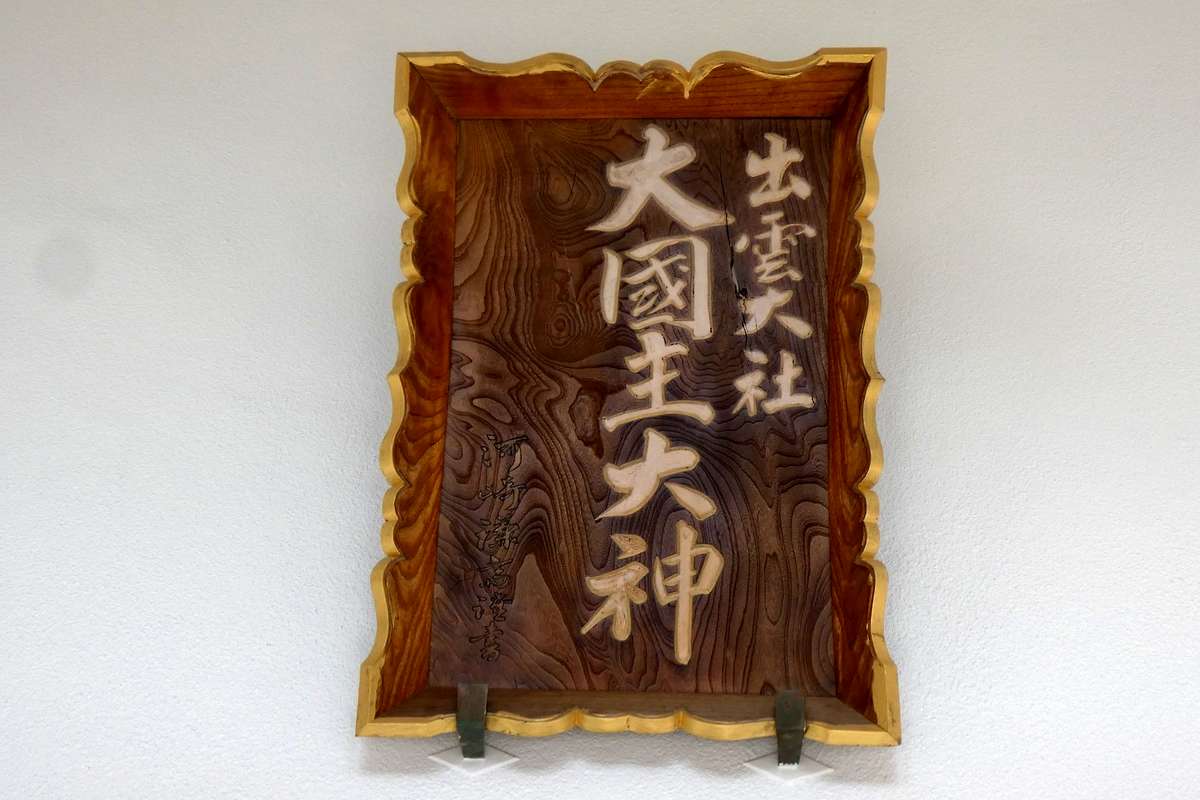 出雲大社
大國主大神